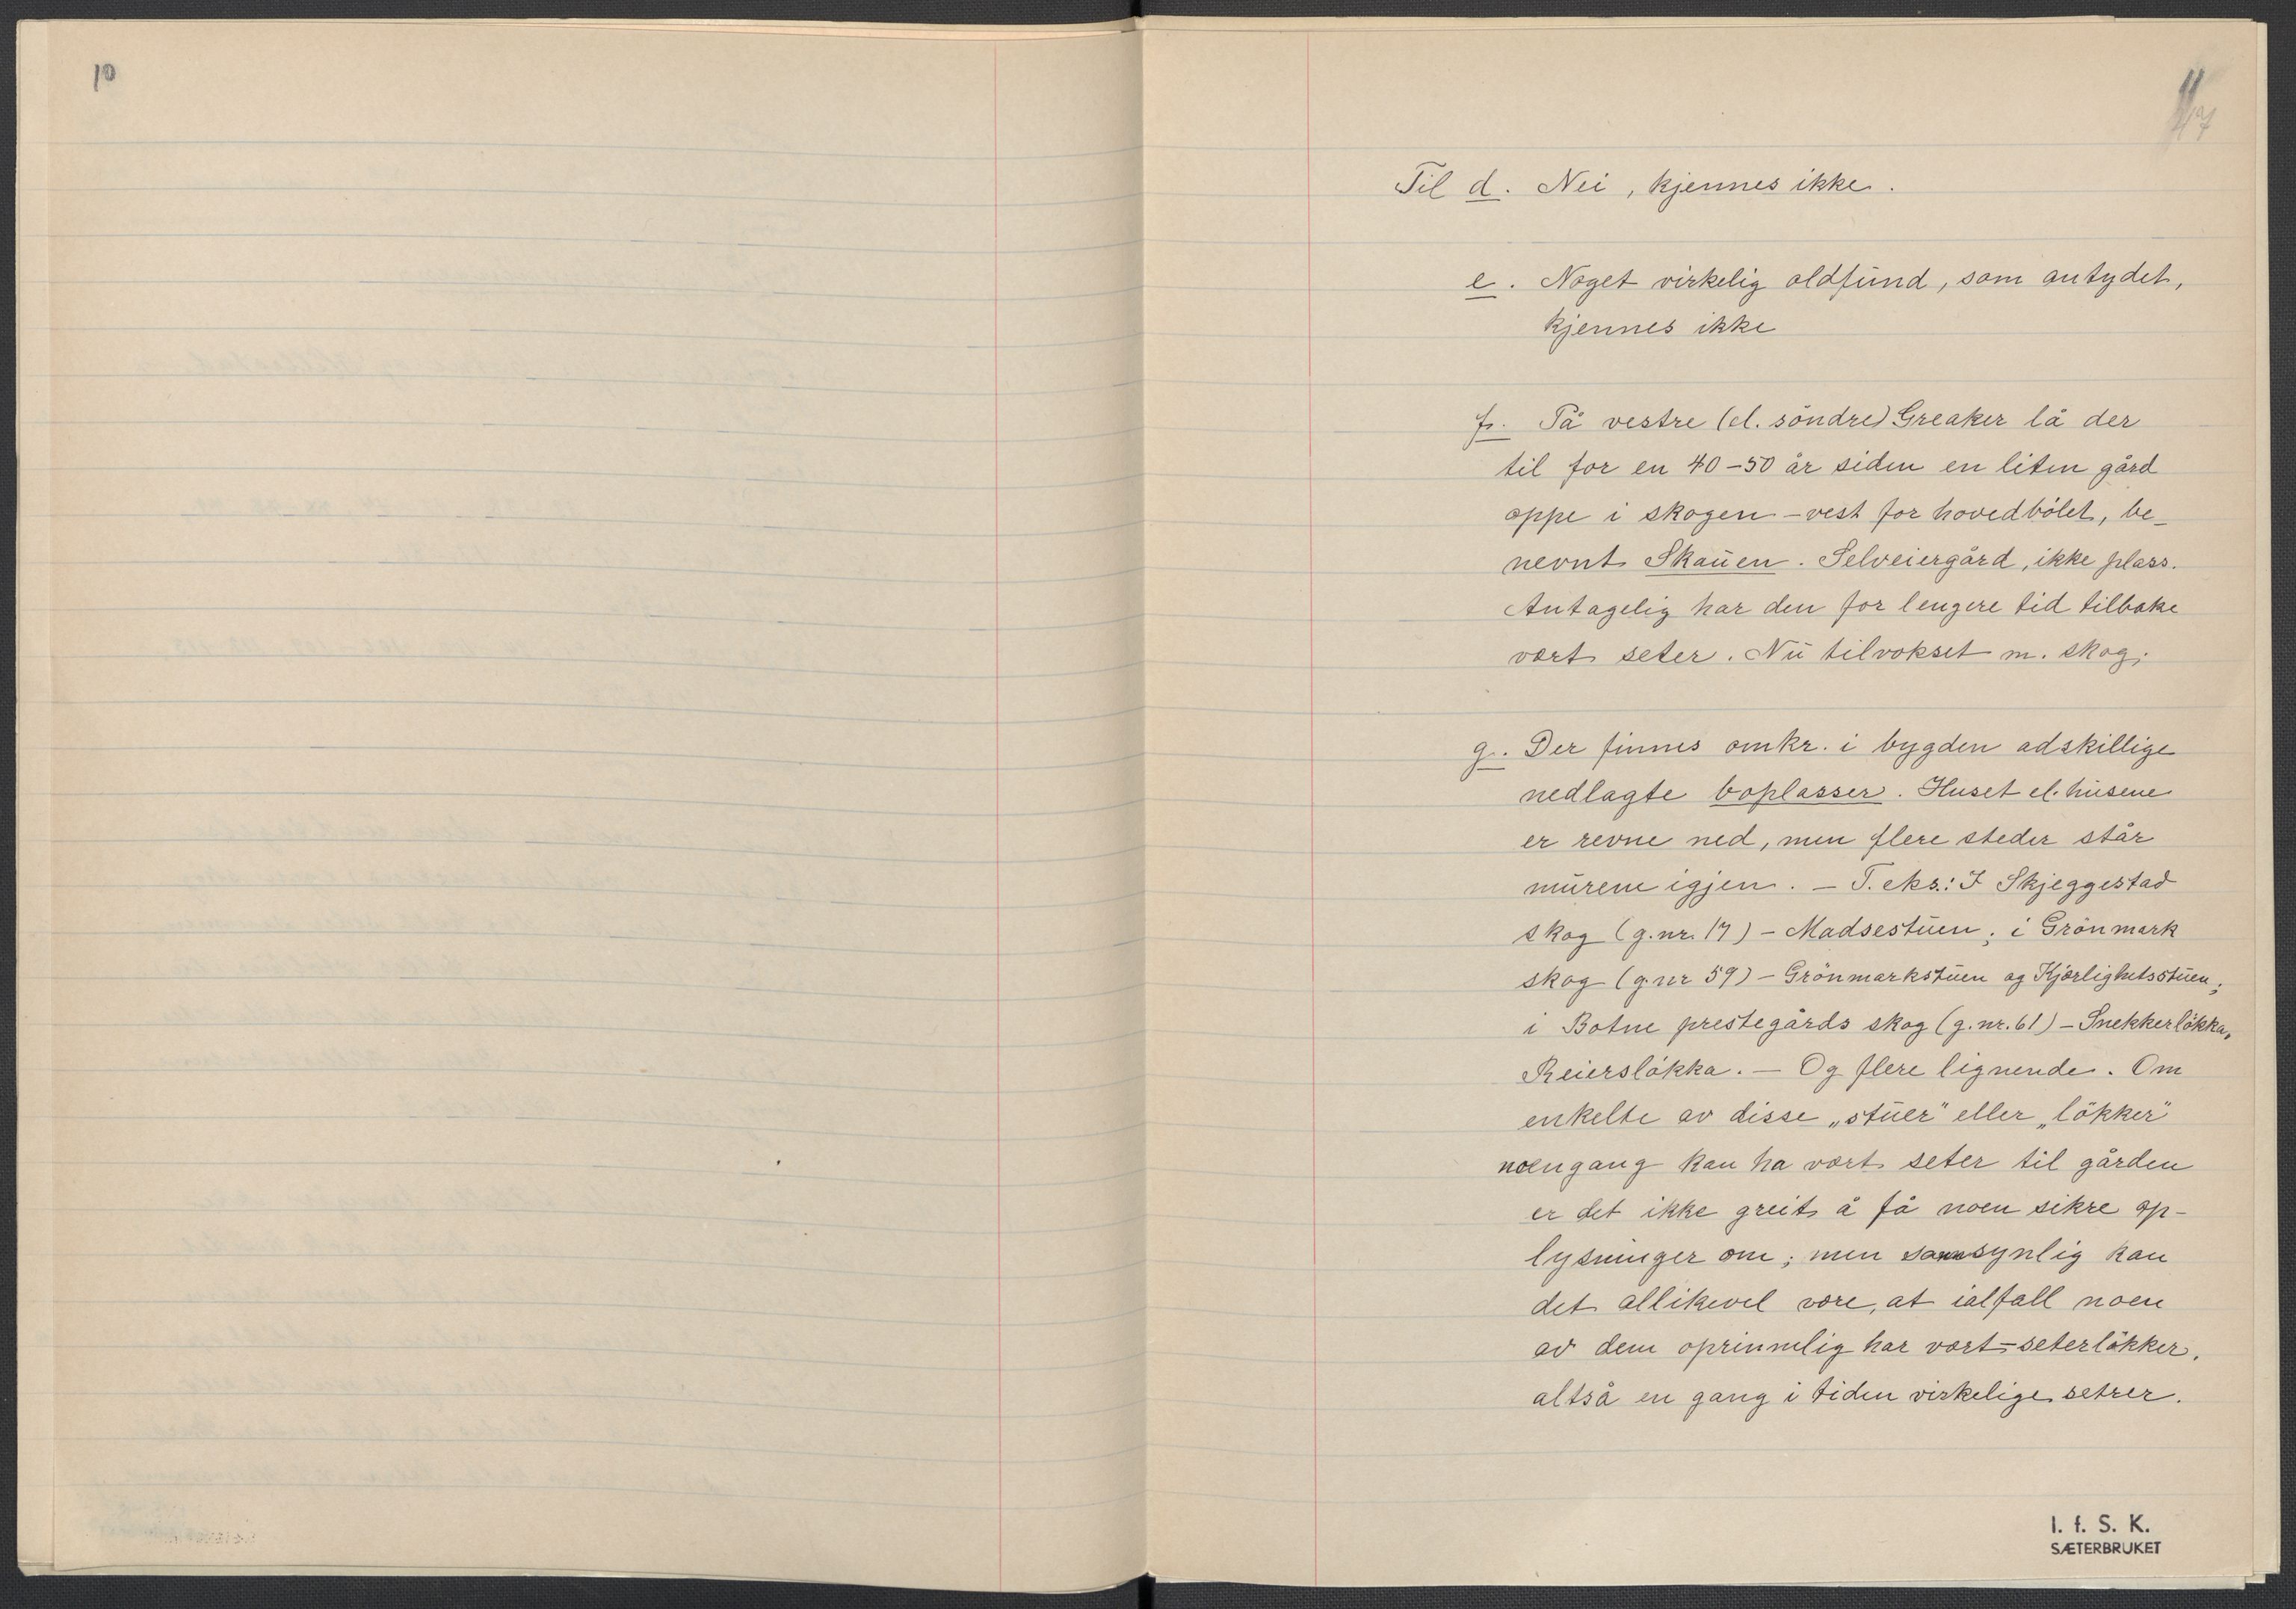 10
11
7
Til d. Nei, kjennes ikke.
e. Noget virkelig oldfund, som antydet,
kjennes ikke
f. På vestre (el. söndre) Greaker lå der
til for en 40-50 år siden en liten gård
oppe i skogen - vest for hovedbölet, be-
nevnt Skauen. Selveiergård, ikke plass.
Antagelig har den for lengere tid tilbake
vært seter. Nu tilvokset m. skog.
g. Der finnes omkr. i bygden adskillige
nedlagte boplasser. Huset el. husene
er revne ned, men flere steder står
murene igjen. - T. eks.: I Skjeggestad
skog (g.nr. 17) - Madsestuen; i Grönmark
skog (g.nr 59) - Grönmarkstuen og Kjærlighetsstuen;
i Botne prestegårds skog (g.nr. 61) - Snekkerlökka,
Reierslökka. - Og flere lignende. Om
enkelte av disse „stuer" eller „lökker"
noengang kan ha vært seter til gården
er det ikke greit å få noen sikre op-
lysninger om; men sannsynlig kan
det allikevel være, at ialfall noen
av dem oprinnelig har vært seterlökker,
altså en gang i tiden virkelige setrer.
I. f. S. K.
SÆTERBRUKET